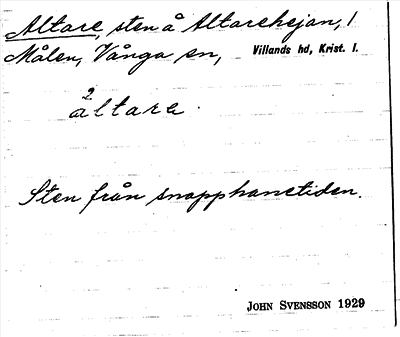 Altare, sten å Altarehejan, 1
Målen, Vånga sn, Villands hd, Krist. l.
2
altare.
Sten från snapphanetiden.
JOHN SVENSSON 1929